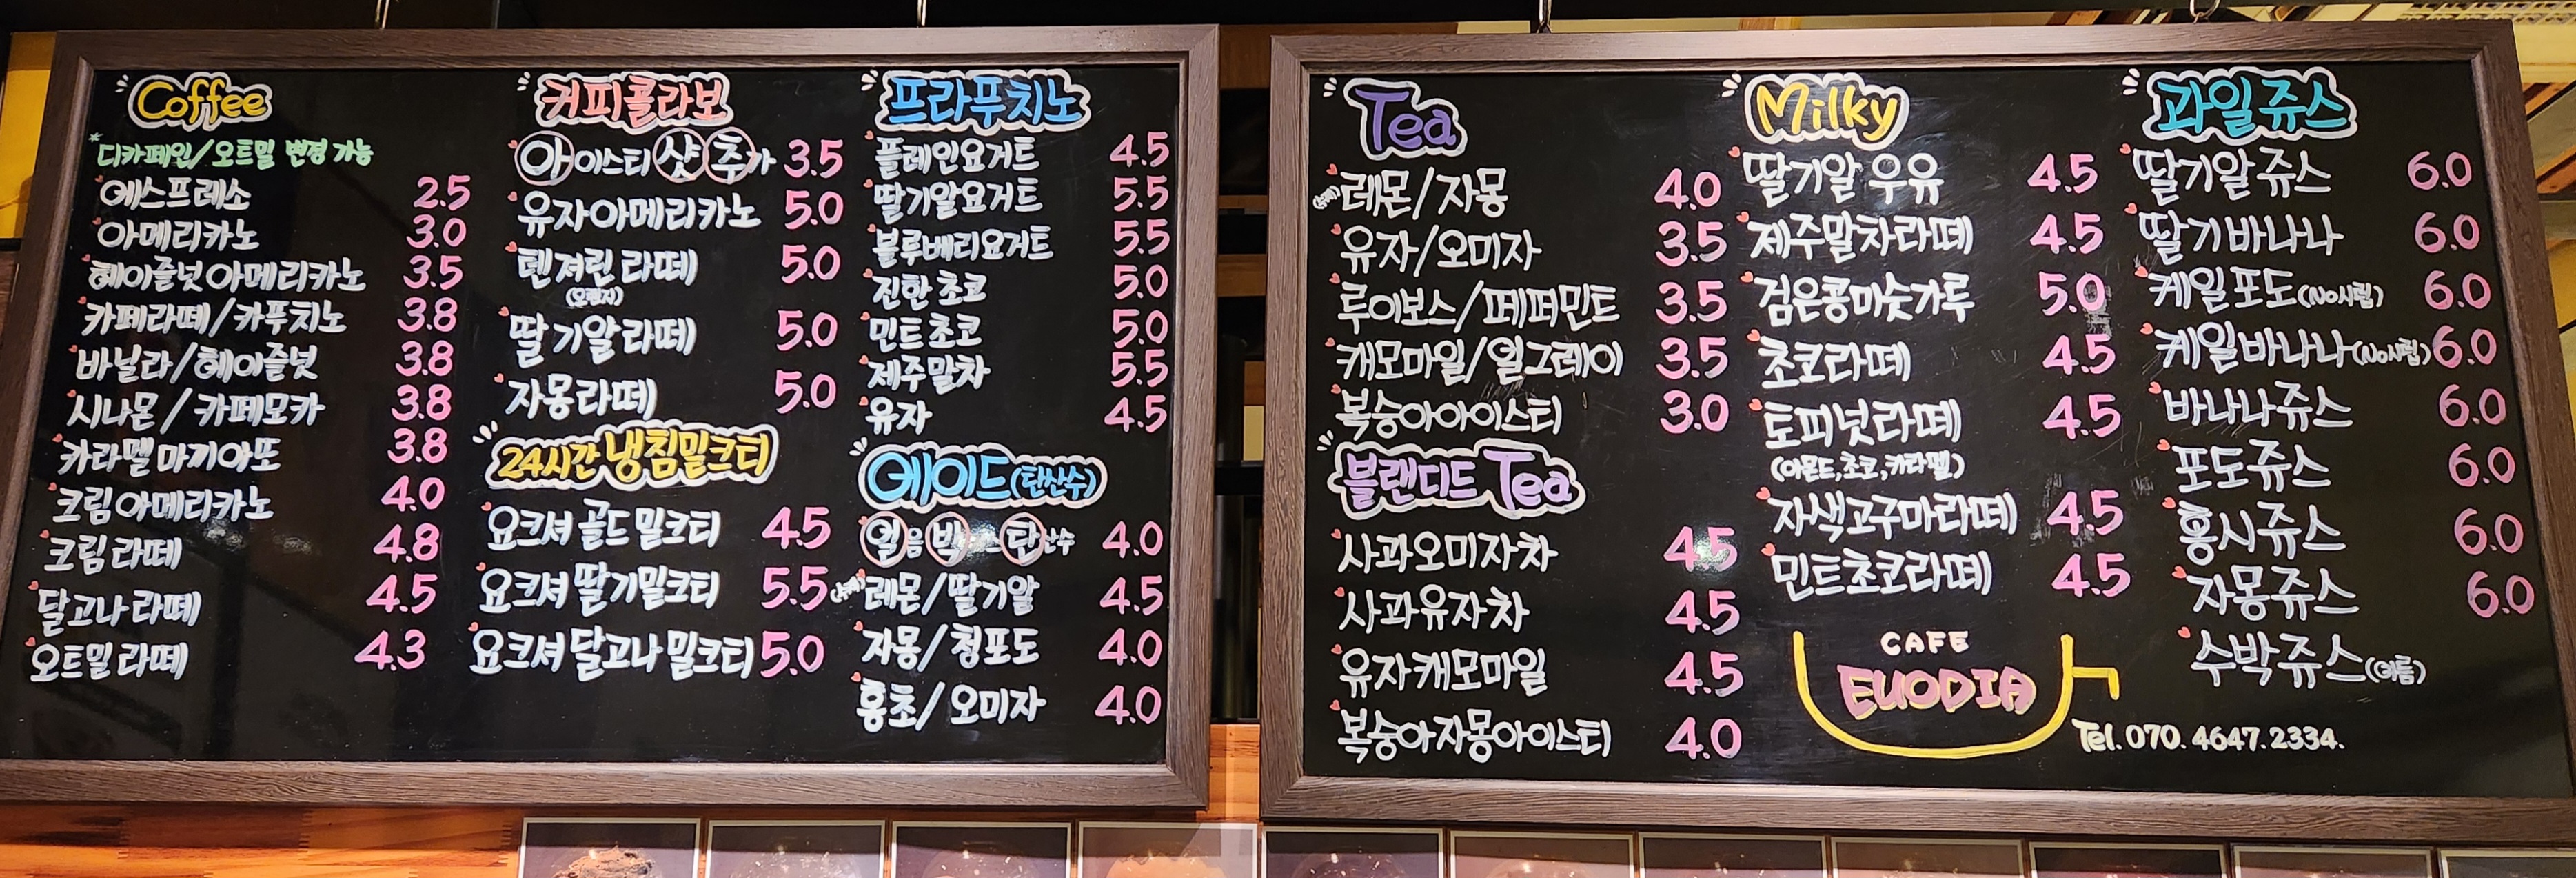 Coffee
*디카페인/오트밀 변경 가능
에스프레소 2.5
아메리카노 3.0
헤이즐넛 아메리카노 3.5
카페라떼/카푸치노 3.8
바닐라/헤이즐넛 3.8
시나몬/카페모카 3.8
카라멜 마끼아또 3.8
크림 아메리카노 4.0
크림 라떼 4.8
달고나 라떼 4.5
오트밀 라떼 4.3
커피콜라보
아이스티 샷추가 3.5
유자아메리카노 5.0
텐져린 라떼 5.0
(오렌지)
딸기알라떼 5.0
자몽라떼 5.0
24시간 냉침밀크티
요크셔 골드 밀크티 4.5
요크셔 딸기밀크티 5.5
요크셔 달고나 밀크티 5.0
프라푸치노
플레인요거트 4.5
딸기알요거트 5.5
블루베리요거트 5.5
진한 초코 5.0
민트초코 5.0
제주말차 5.5
유자 4.5
에이드(탄산수)
얼음 탄산수 4.0
(수제)레몬/딸기알 4.5
자몽/청포도 4.0
홍초/오미자 4.0
Tea
(수제)레몬/자몽 4.0
유자/오미자 3.5
루이보스/페퍼민트 3.5
캐모마일/얼그레이 3.5
복숭아아이스티 3.0
블랜디드 Tea
사과오미자차 4.5
사과유자차 4.5
유자캐모마일 4.5
복숭아자몽아이스티 4.0
Milky
딸기알 우유 4.5
제주말차라떼 4.5
검은콩미숫가루 5.0
초코라떼 4.5
토피넛라떼 4.5
(아몬드,초코,카라멜)
자색고구마라떼 4.5
민트초코라떼 4.5
CAFE
EUODIA
Tel. 070. 4647. 2334.
과일쥬스
딸기알 쥬스 6.0
딸기바나나 6.0
케일포도(No시럽) 6.0
케일바나나(No시럽) 6.0
바나나쥬스 6.0
포도쥬스 6.0
홍시쥬스 6.0
자몽쥬스 6.0
수박쥬스(여름)